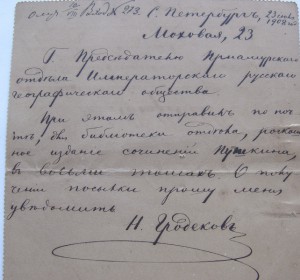 Вход № 213. С. Петербургъ, 23
1908
Моховая, 23
Г. Председателю Приамурскаго
отдѣла Императорскаго русскаго
географическаго общества.
При этомъ отправилъ по поч-
тѣ, для библіотеки отдѣла, роскош-
ное изданіе сочиненій Пушкина,
въ восьми томахъ. О полу-
ченіи посылки прошу меня
увѣдомить
Н. Гродековъ